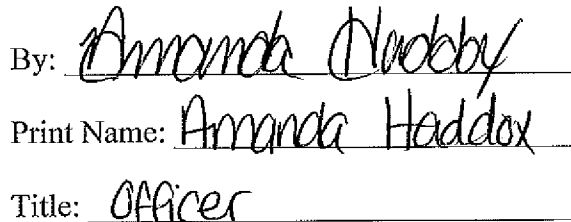 By: Amanda Haddox
Print Name: Amanda Haddox
Title: Officer